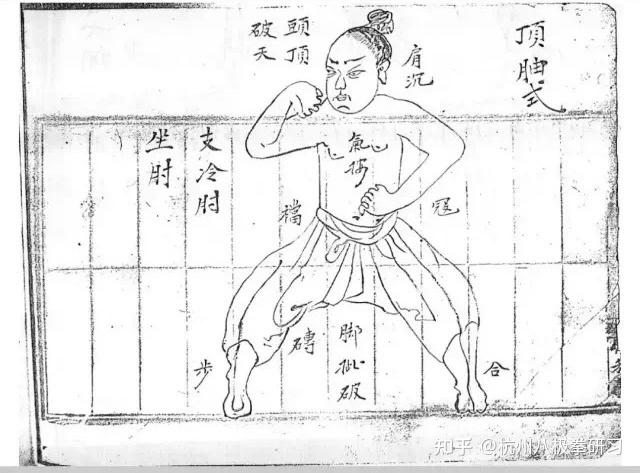 頂式
肩沉
頭頂
破天
氣
支冷肘
坐肘
襠
磚
脚破
步
合
知乎 @杭州八极拳研习